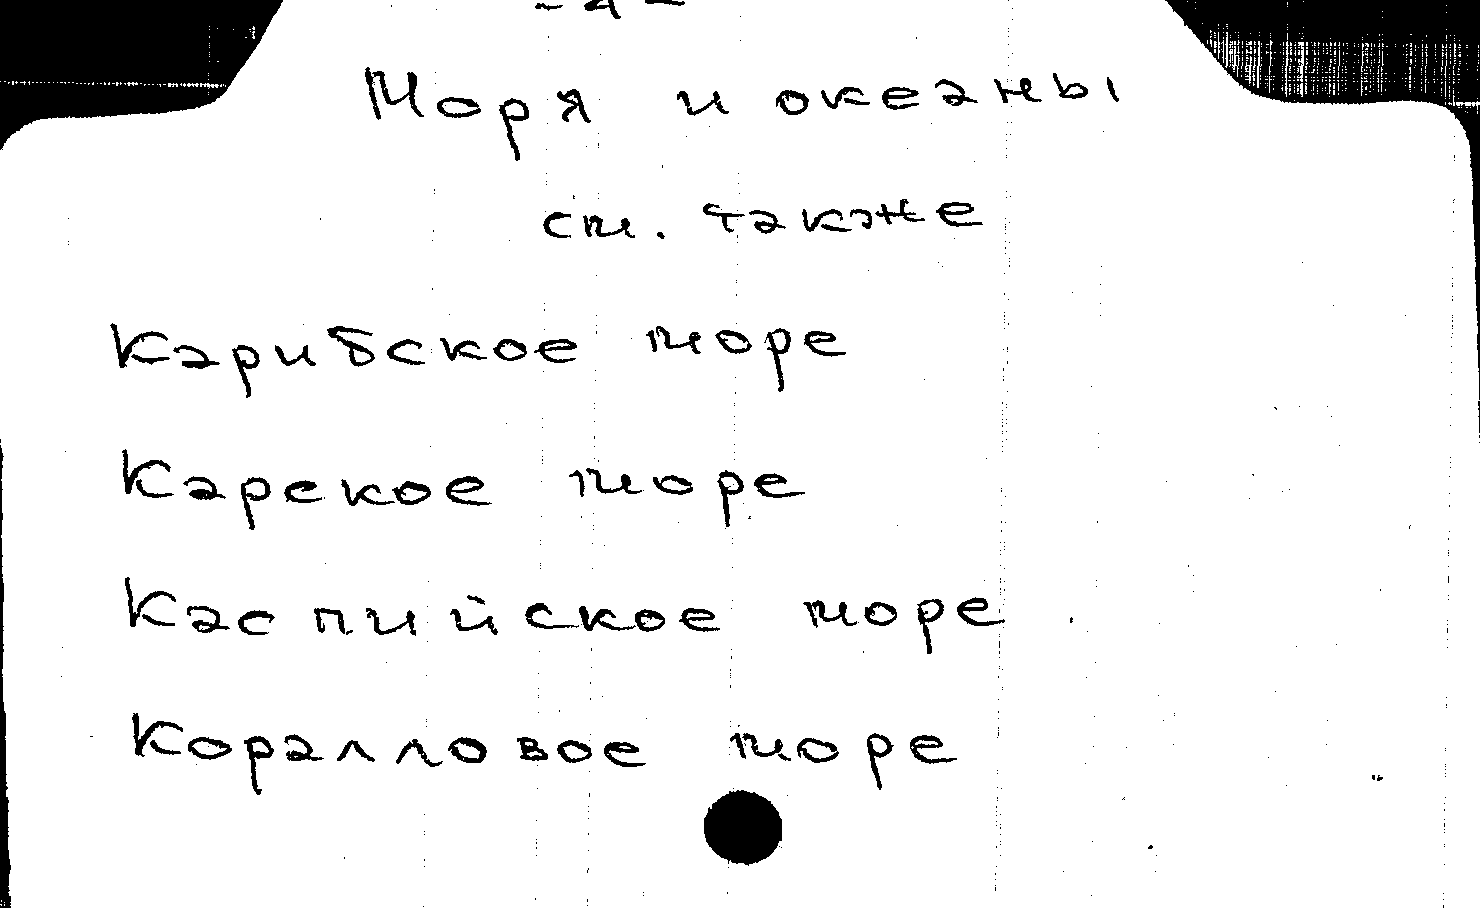 - 4 -
Моря и океаны
см. также
Карибское море
Карское море
Каспийское море
Коралловое море